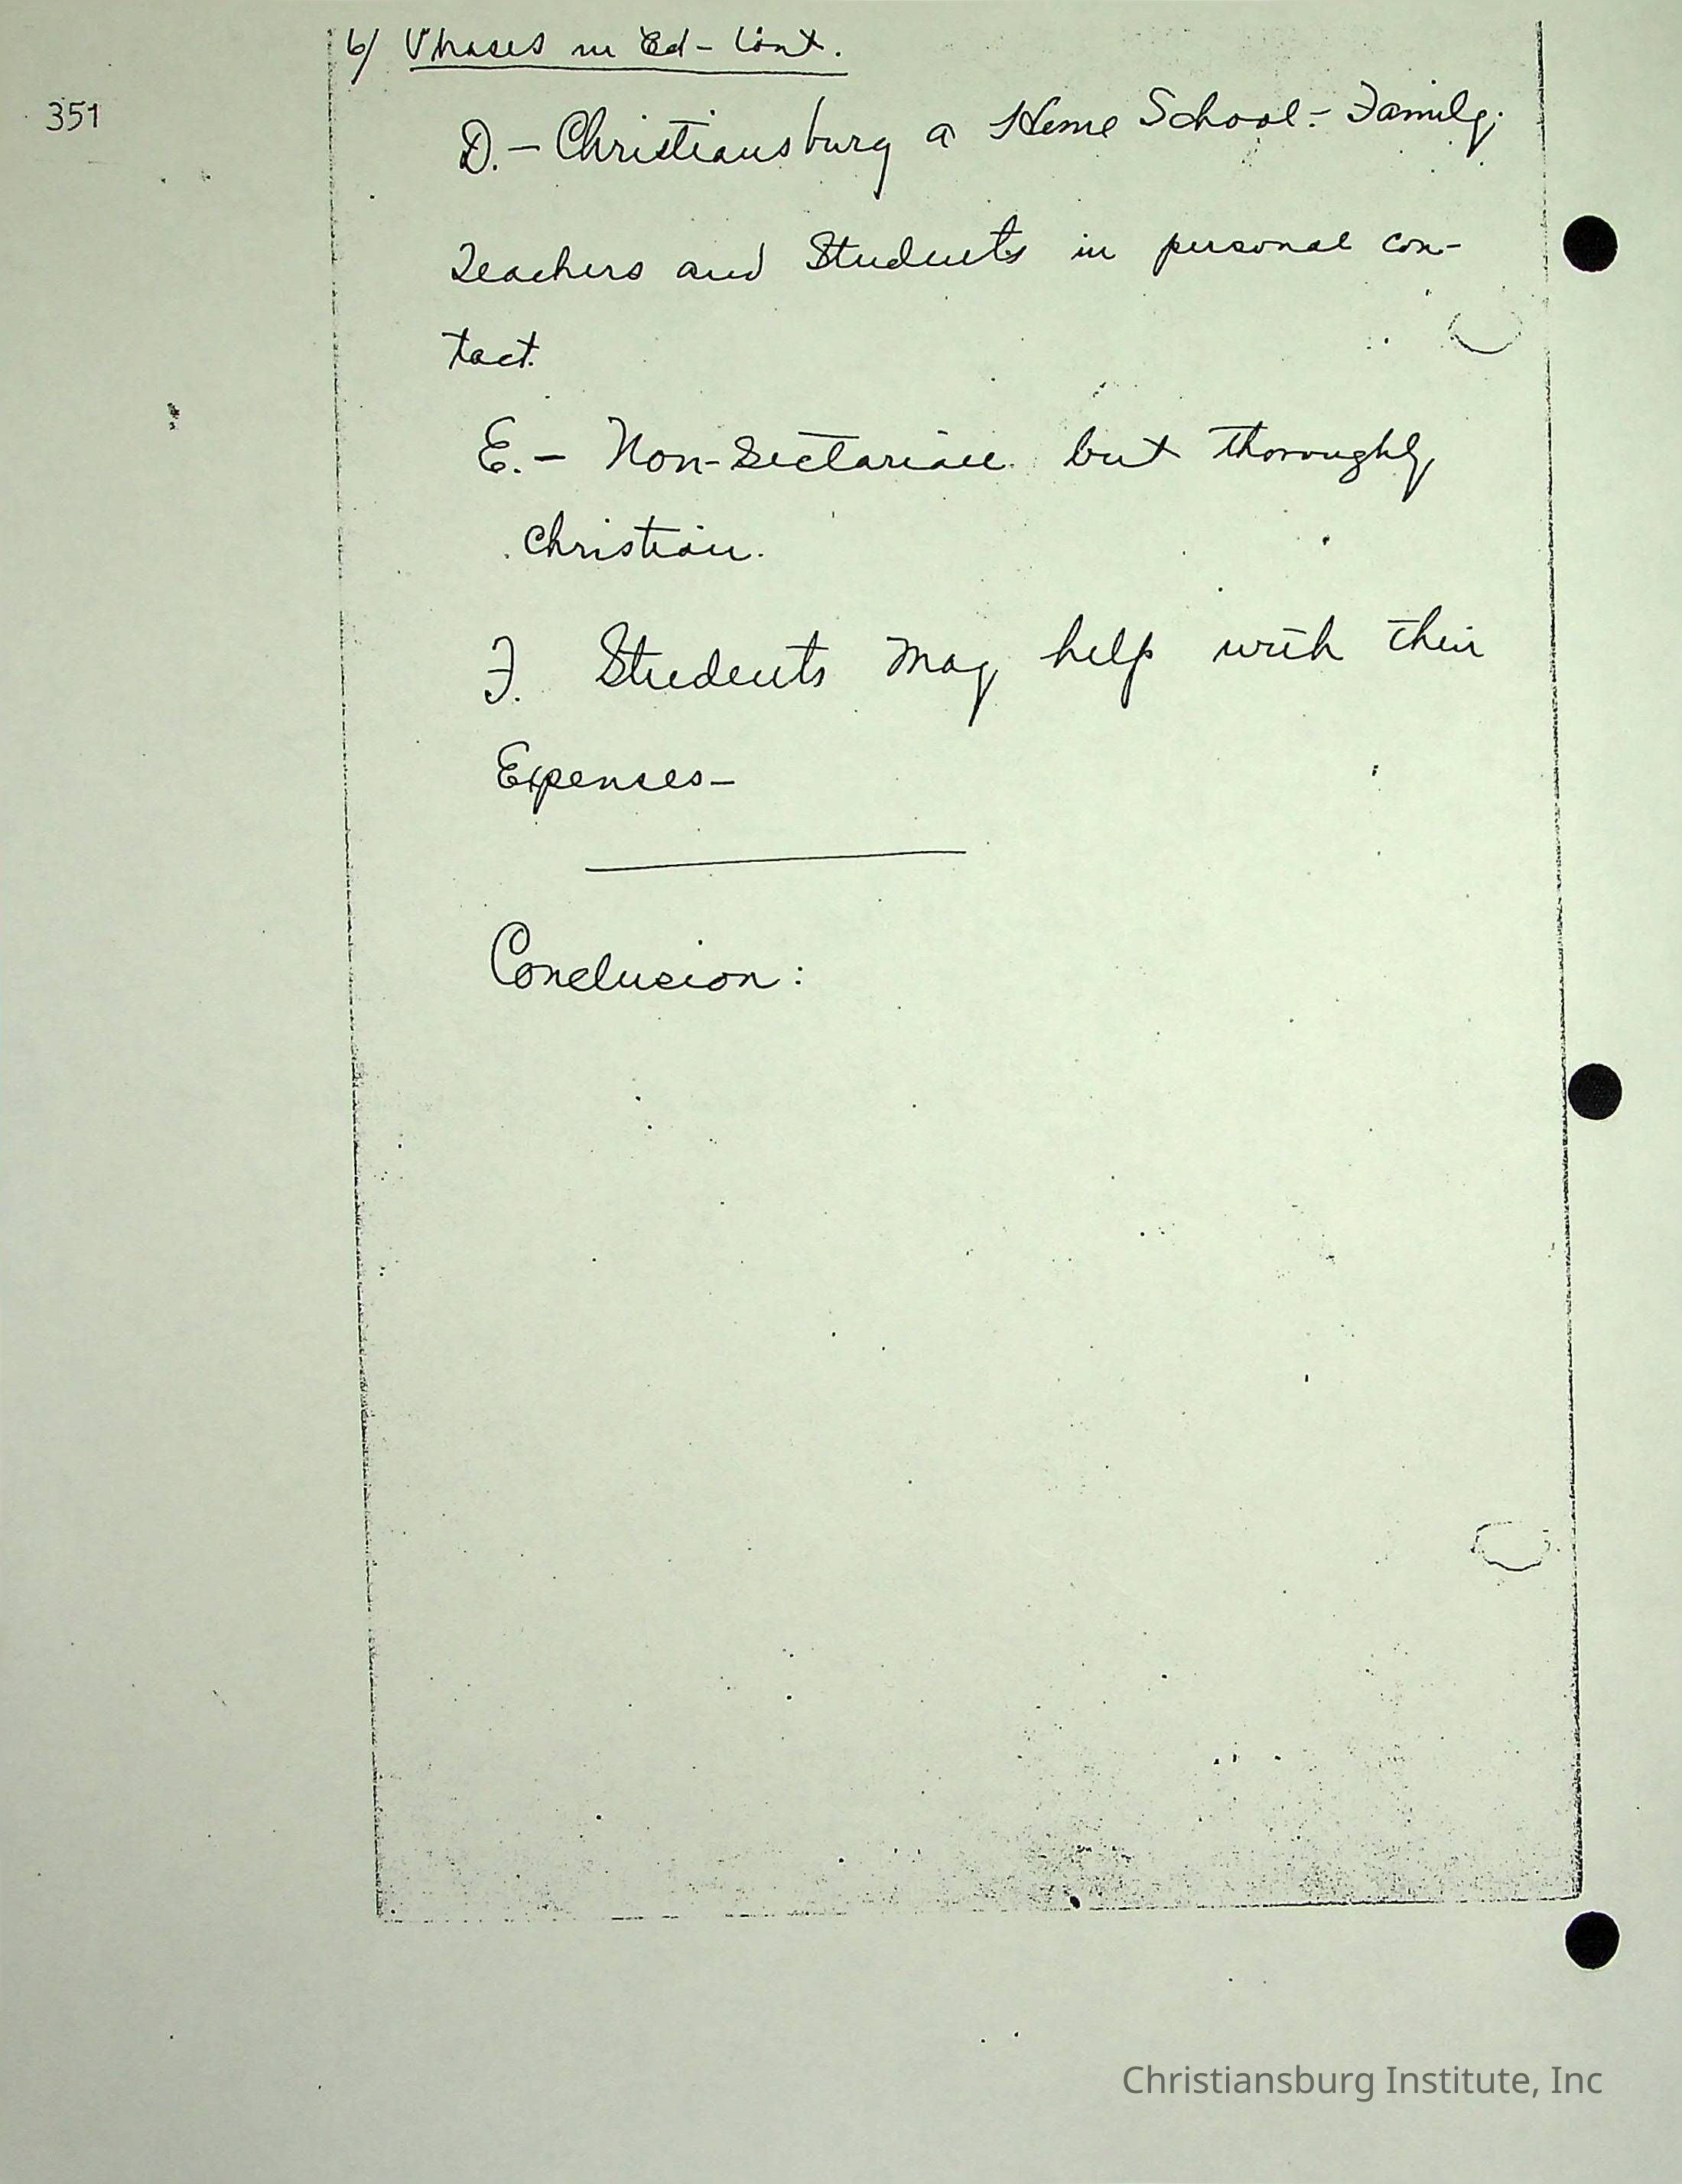 6/ Phases in Ed- Cont.
351
D.- Christiansburg a Home School:- Family;
Teachers and Students in personal con-
tact.
E.- Non-Sectarian but thoroughly
Christian.
F. Students may help with their
Expenses-
Conclusion:
Christiansburg Institute, Inc